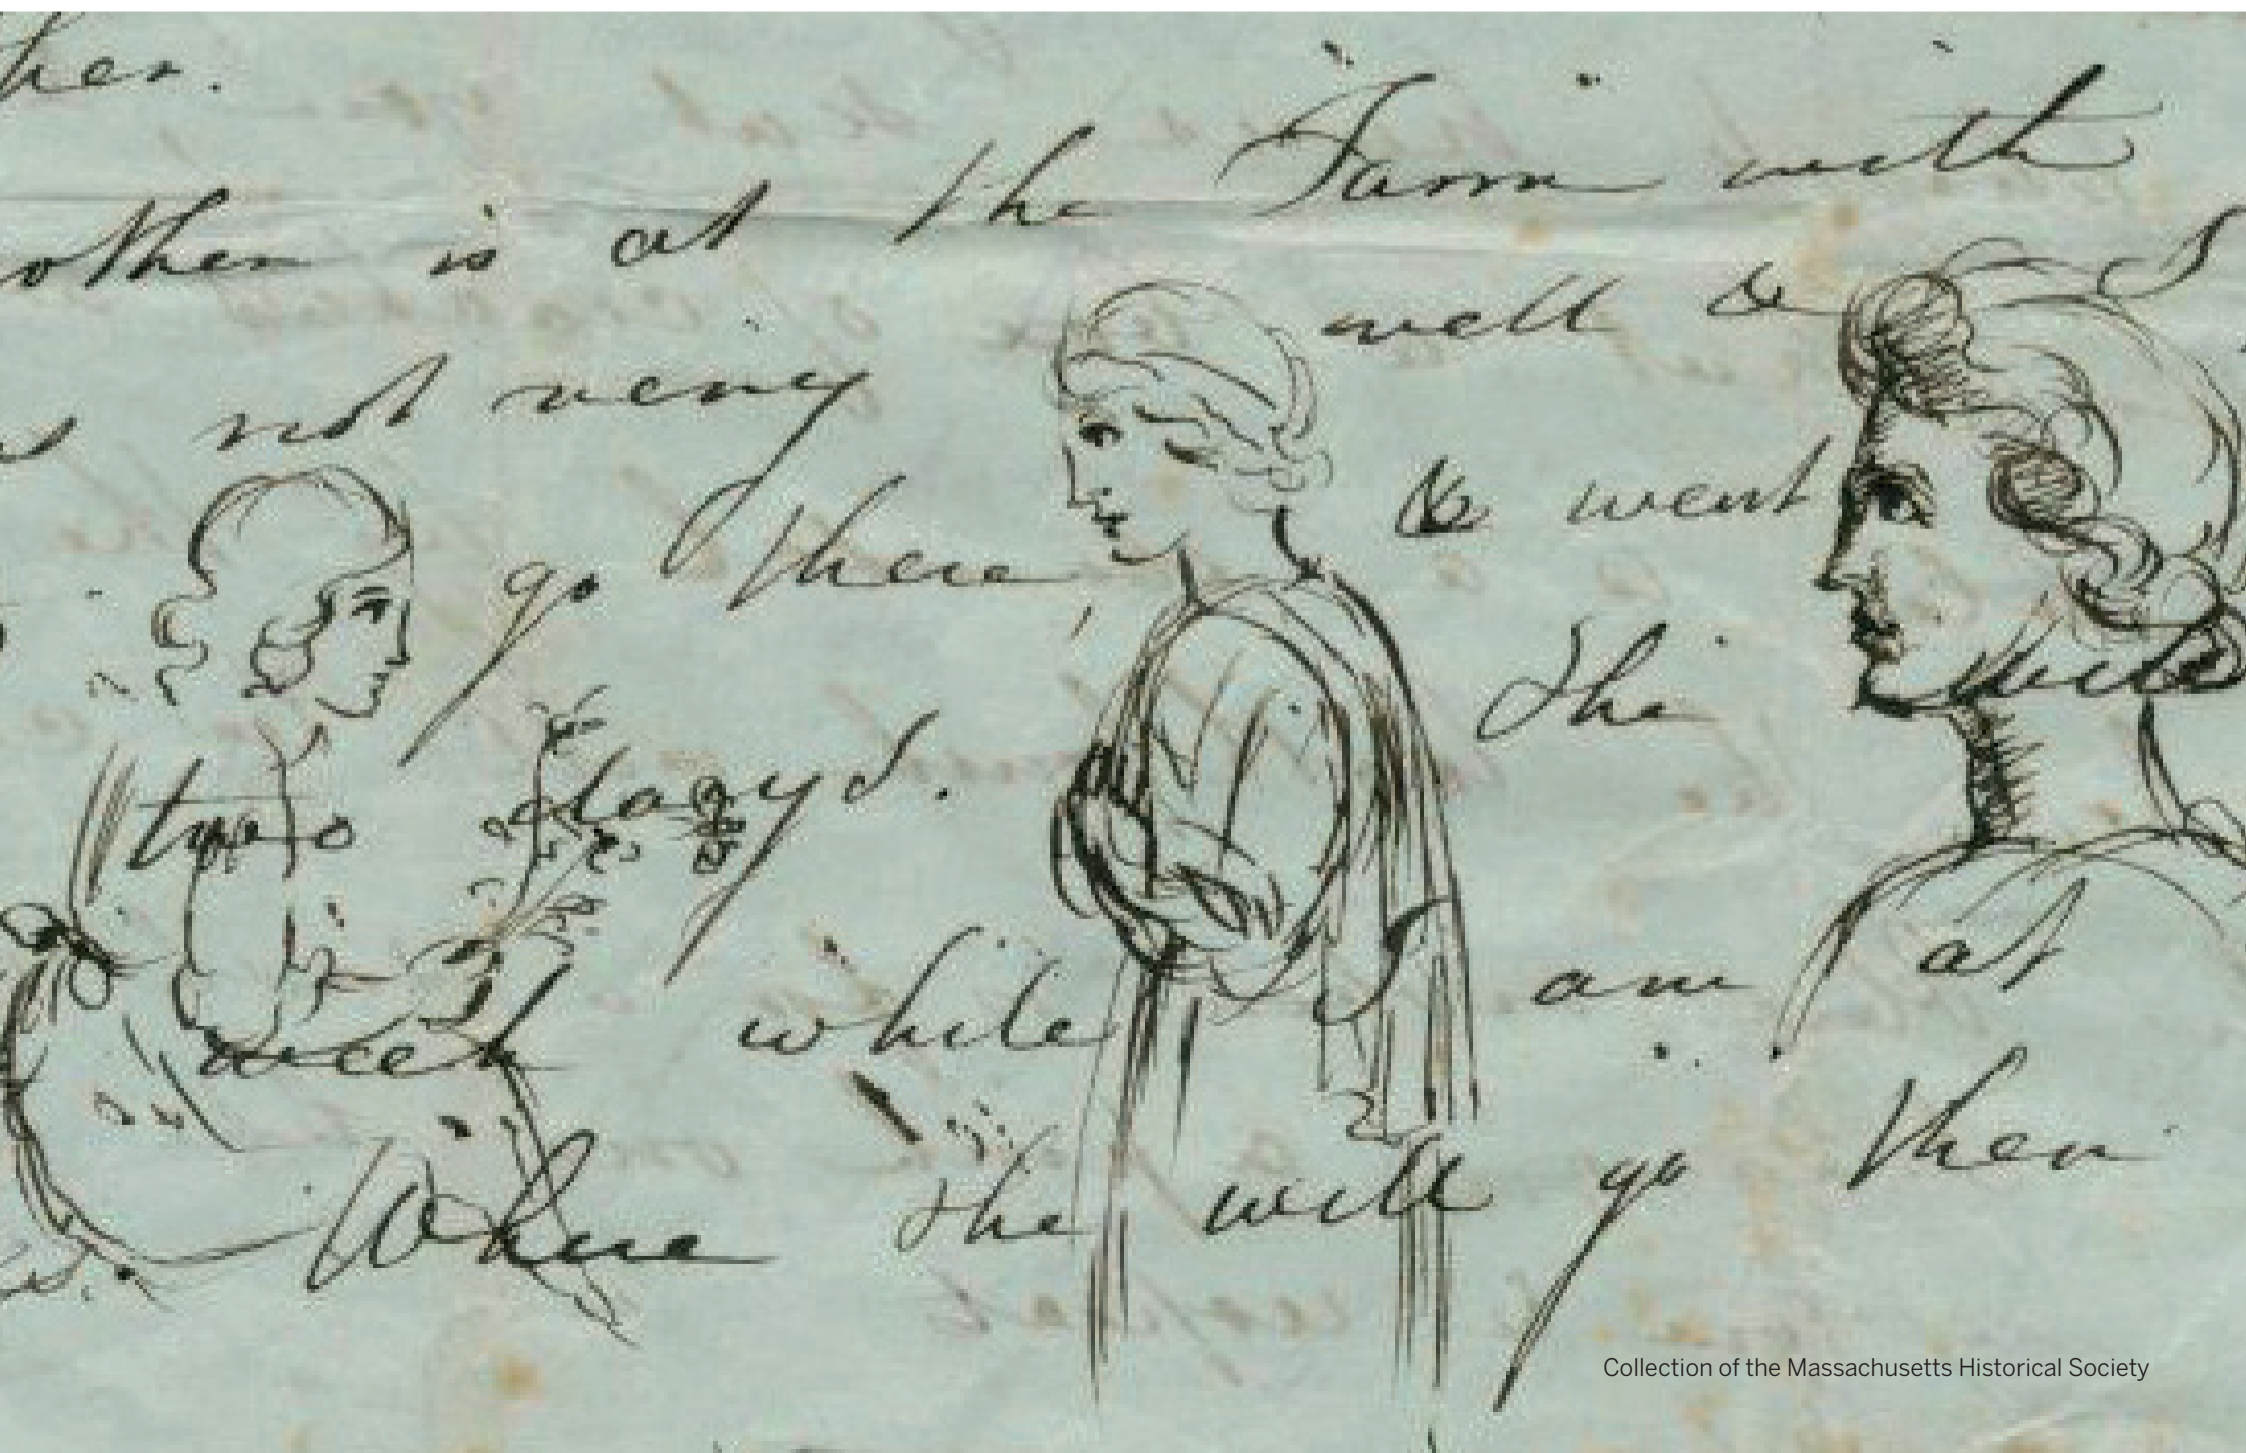 her.
other is at the Farm with
s not very well & I
go there, & went
two days. She will
week while I am at
es. Where she will go then
Collection of the Massachusetts Historical Society